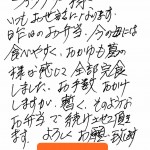 いつもお世話になります。
昨日のお弁当、今の歯には
食いやすく、おかゆも
様な感じで全部完食
しました。お手数おかけ
しますが、暫く、そのような
お弁当で続けさせて頂き
ます。よろしくお願い致します